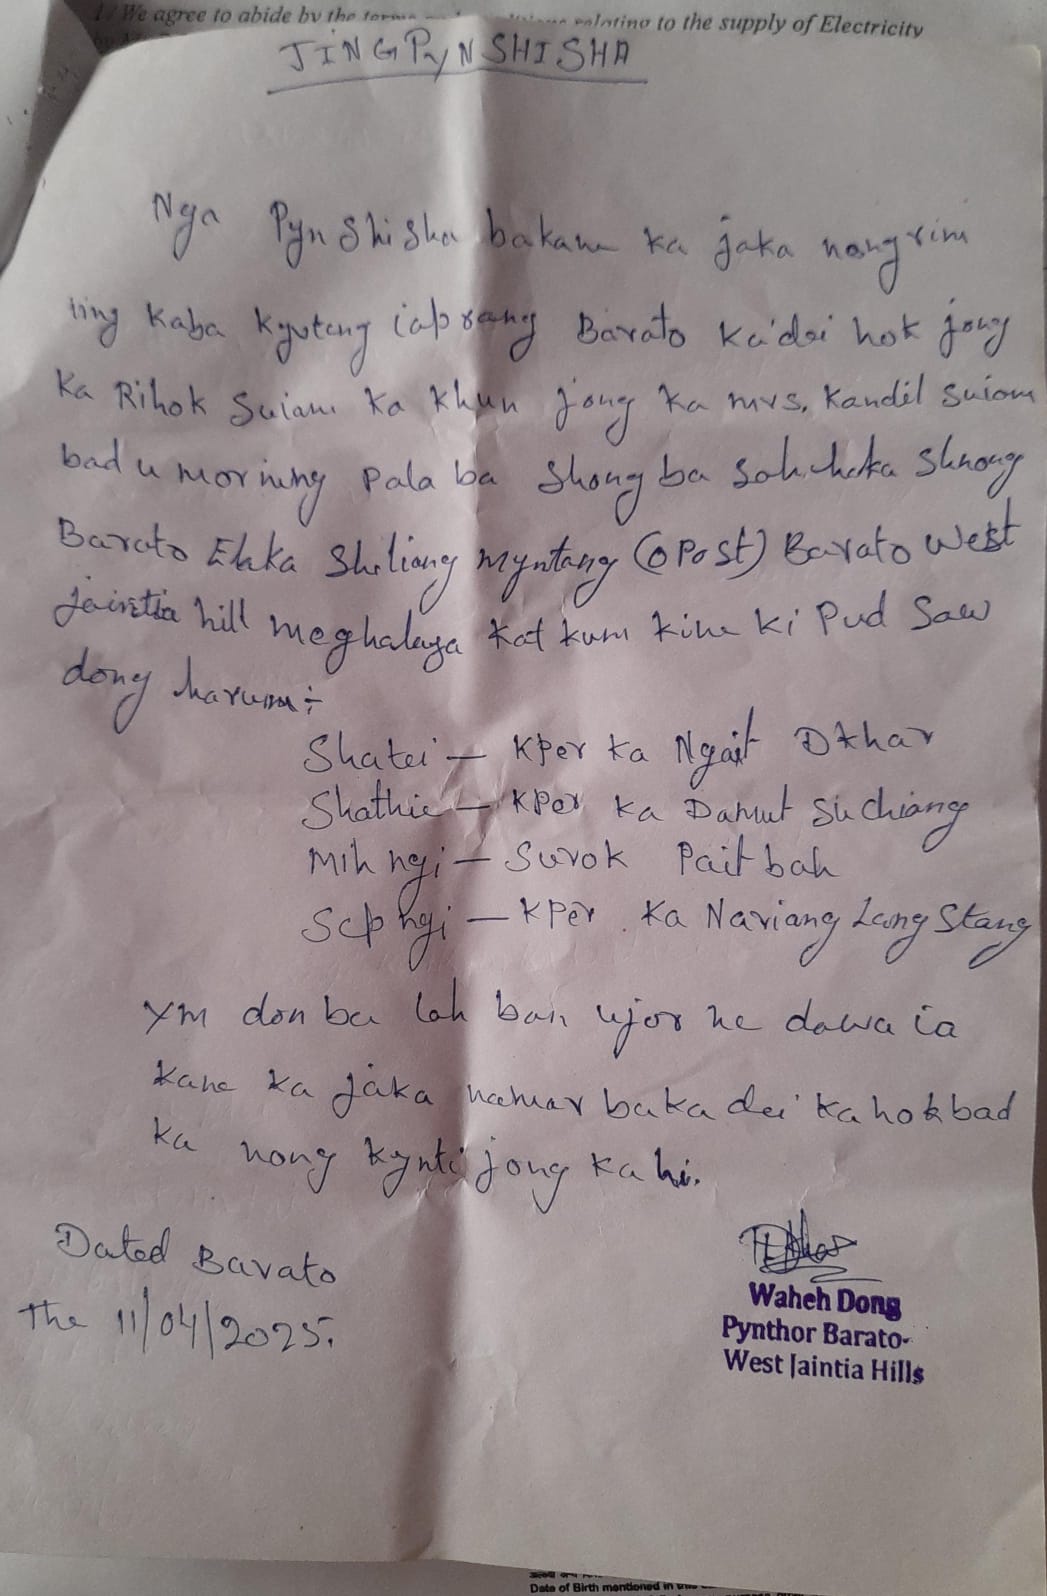 1/ We agree to abide by the terms relating to the supply of Electricity
JINGPYNSHISHA
Nga Pynshisha bakane ka jaka nongrim
iing kaba kyuteng iaprang Barato ka'dei hok jong
Ka Rihok Suiam ka khun jong ka mrs. Kandil Suiam
bad u morning Pala ba Shong ba sah haka Shnong
Barato Elaka Shiliang myntang (O Post) Barato West
jaintia hill meghalaya kat kum kine ki Pud Saw
dong harum:-
Shatei - KPer ka Ngait Dkhar
Shathie - KPer ka Damut Suchiang
Mih ngi - Surok Pait bah
Sep ngi - KPer Ka Nariang Lang Stang
Ym don ba lah ban ujor ne dawa ia
kane ka jaka namar baka dei ka hok bad
ka nong kynti jong ka hi.
Dated Barato
The 11/04/2025.
Waheh Dong
Pynthor Barato-
West Jaintia Hills
Date of Birth mentioned in